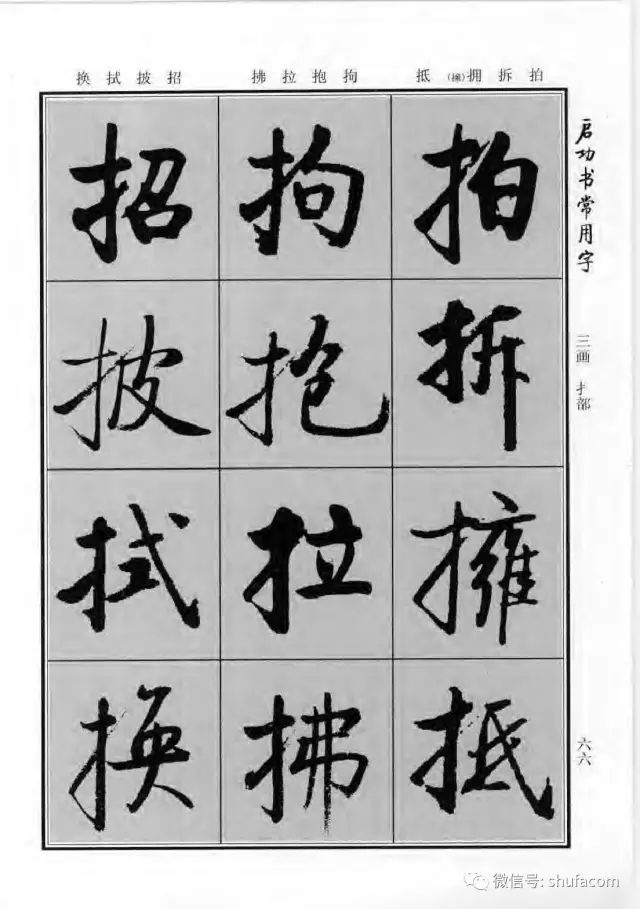 换 拭 披 招
拂 拉 抱 拘
抵 (擁)拥 拆 拍
启功书常用字
三画 扌部
六六
拍
拆
擁
抵
拘
抱
拉
拂
招
披
拭
换
微信号: shufacom